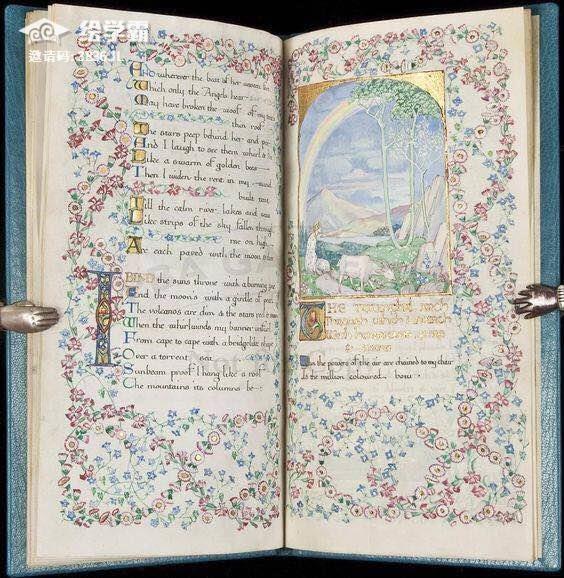 绘学霸
邀请码:
And wherever the beat of her unseen
Which only the Angels hear
May have broken the woof of my
thin roof
The stars peep behind her and
And I laugh to see them whirl &
Like a swarm of golden bees
I widen the rent in my wind
built tent
Till the calm lakes and seas
Like strips of the sky fallen through
me on high
Are each paved with the moon & these
I BIND the suns throne with a burning zone
And the moons with a girdle of pearl
The volcanos are dim & the stars reel &
When the whirlwinds my banner unfurl
From cape to cape with a bridgelike shape
Over a torrent sea
Sunbeam proof I hang like a roof
The mountains its columns be
The triumphal arch
Through which I march
With hurricane fire
& snow
When the powers of the air are chained to my chair
Is the million coloured bow